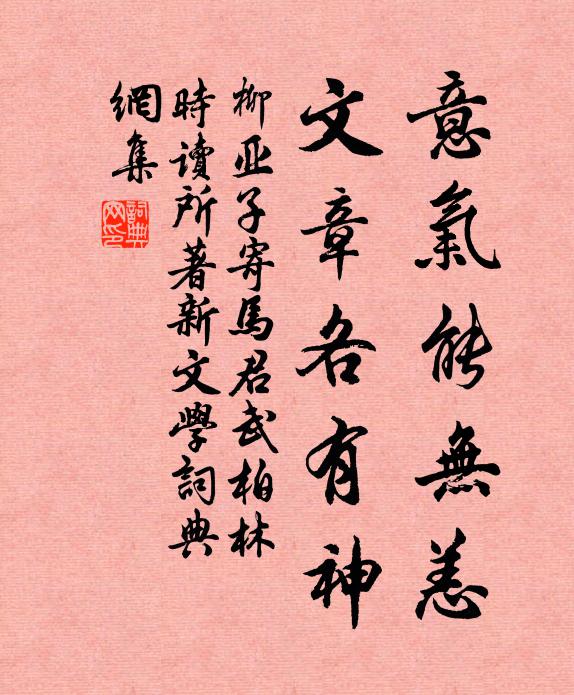 意氣能無恙
文章各有神
柳亚子寄馬君武柏林
時讀所著新文學詞典
網集
詞典網印